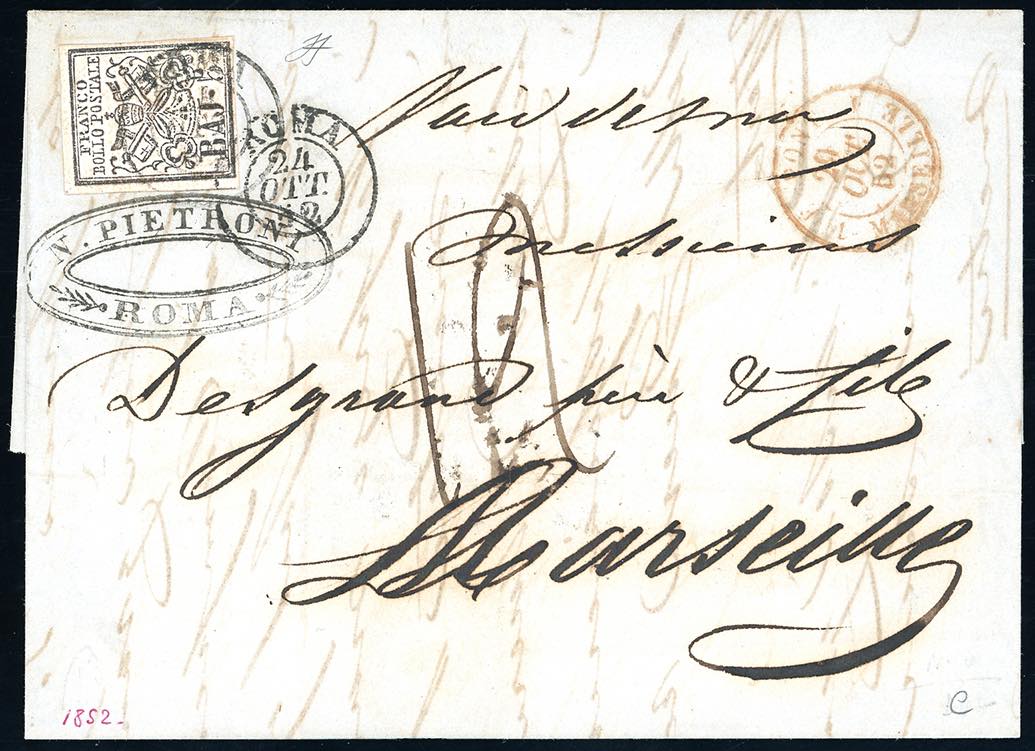 FRANCO
BOLLO POSTALE
BAJ. 5
ROMA
24
OTT.
52
N. PIETRONI
ROMA
MARSEILLE
29
OCT
52
Messieurs
Desgrand père & fils
Marseille
1852-
C